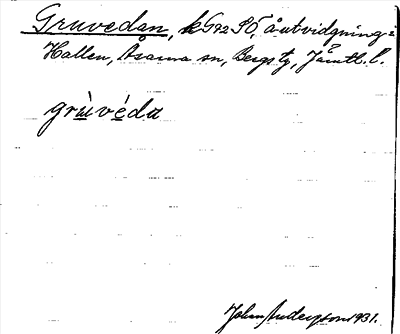 Gruvedan, k G92 SÖ, åutvidgning i
Hallen, Åsarna sn, Bergs tg, Jämtl. l.
grùvéda
John Anderson 1931.